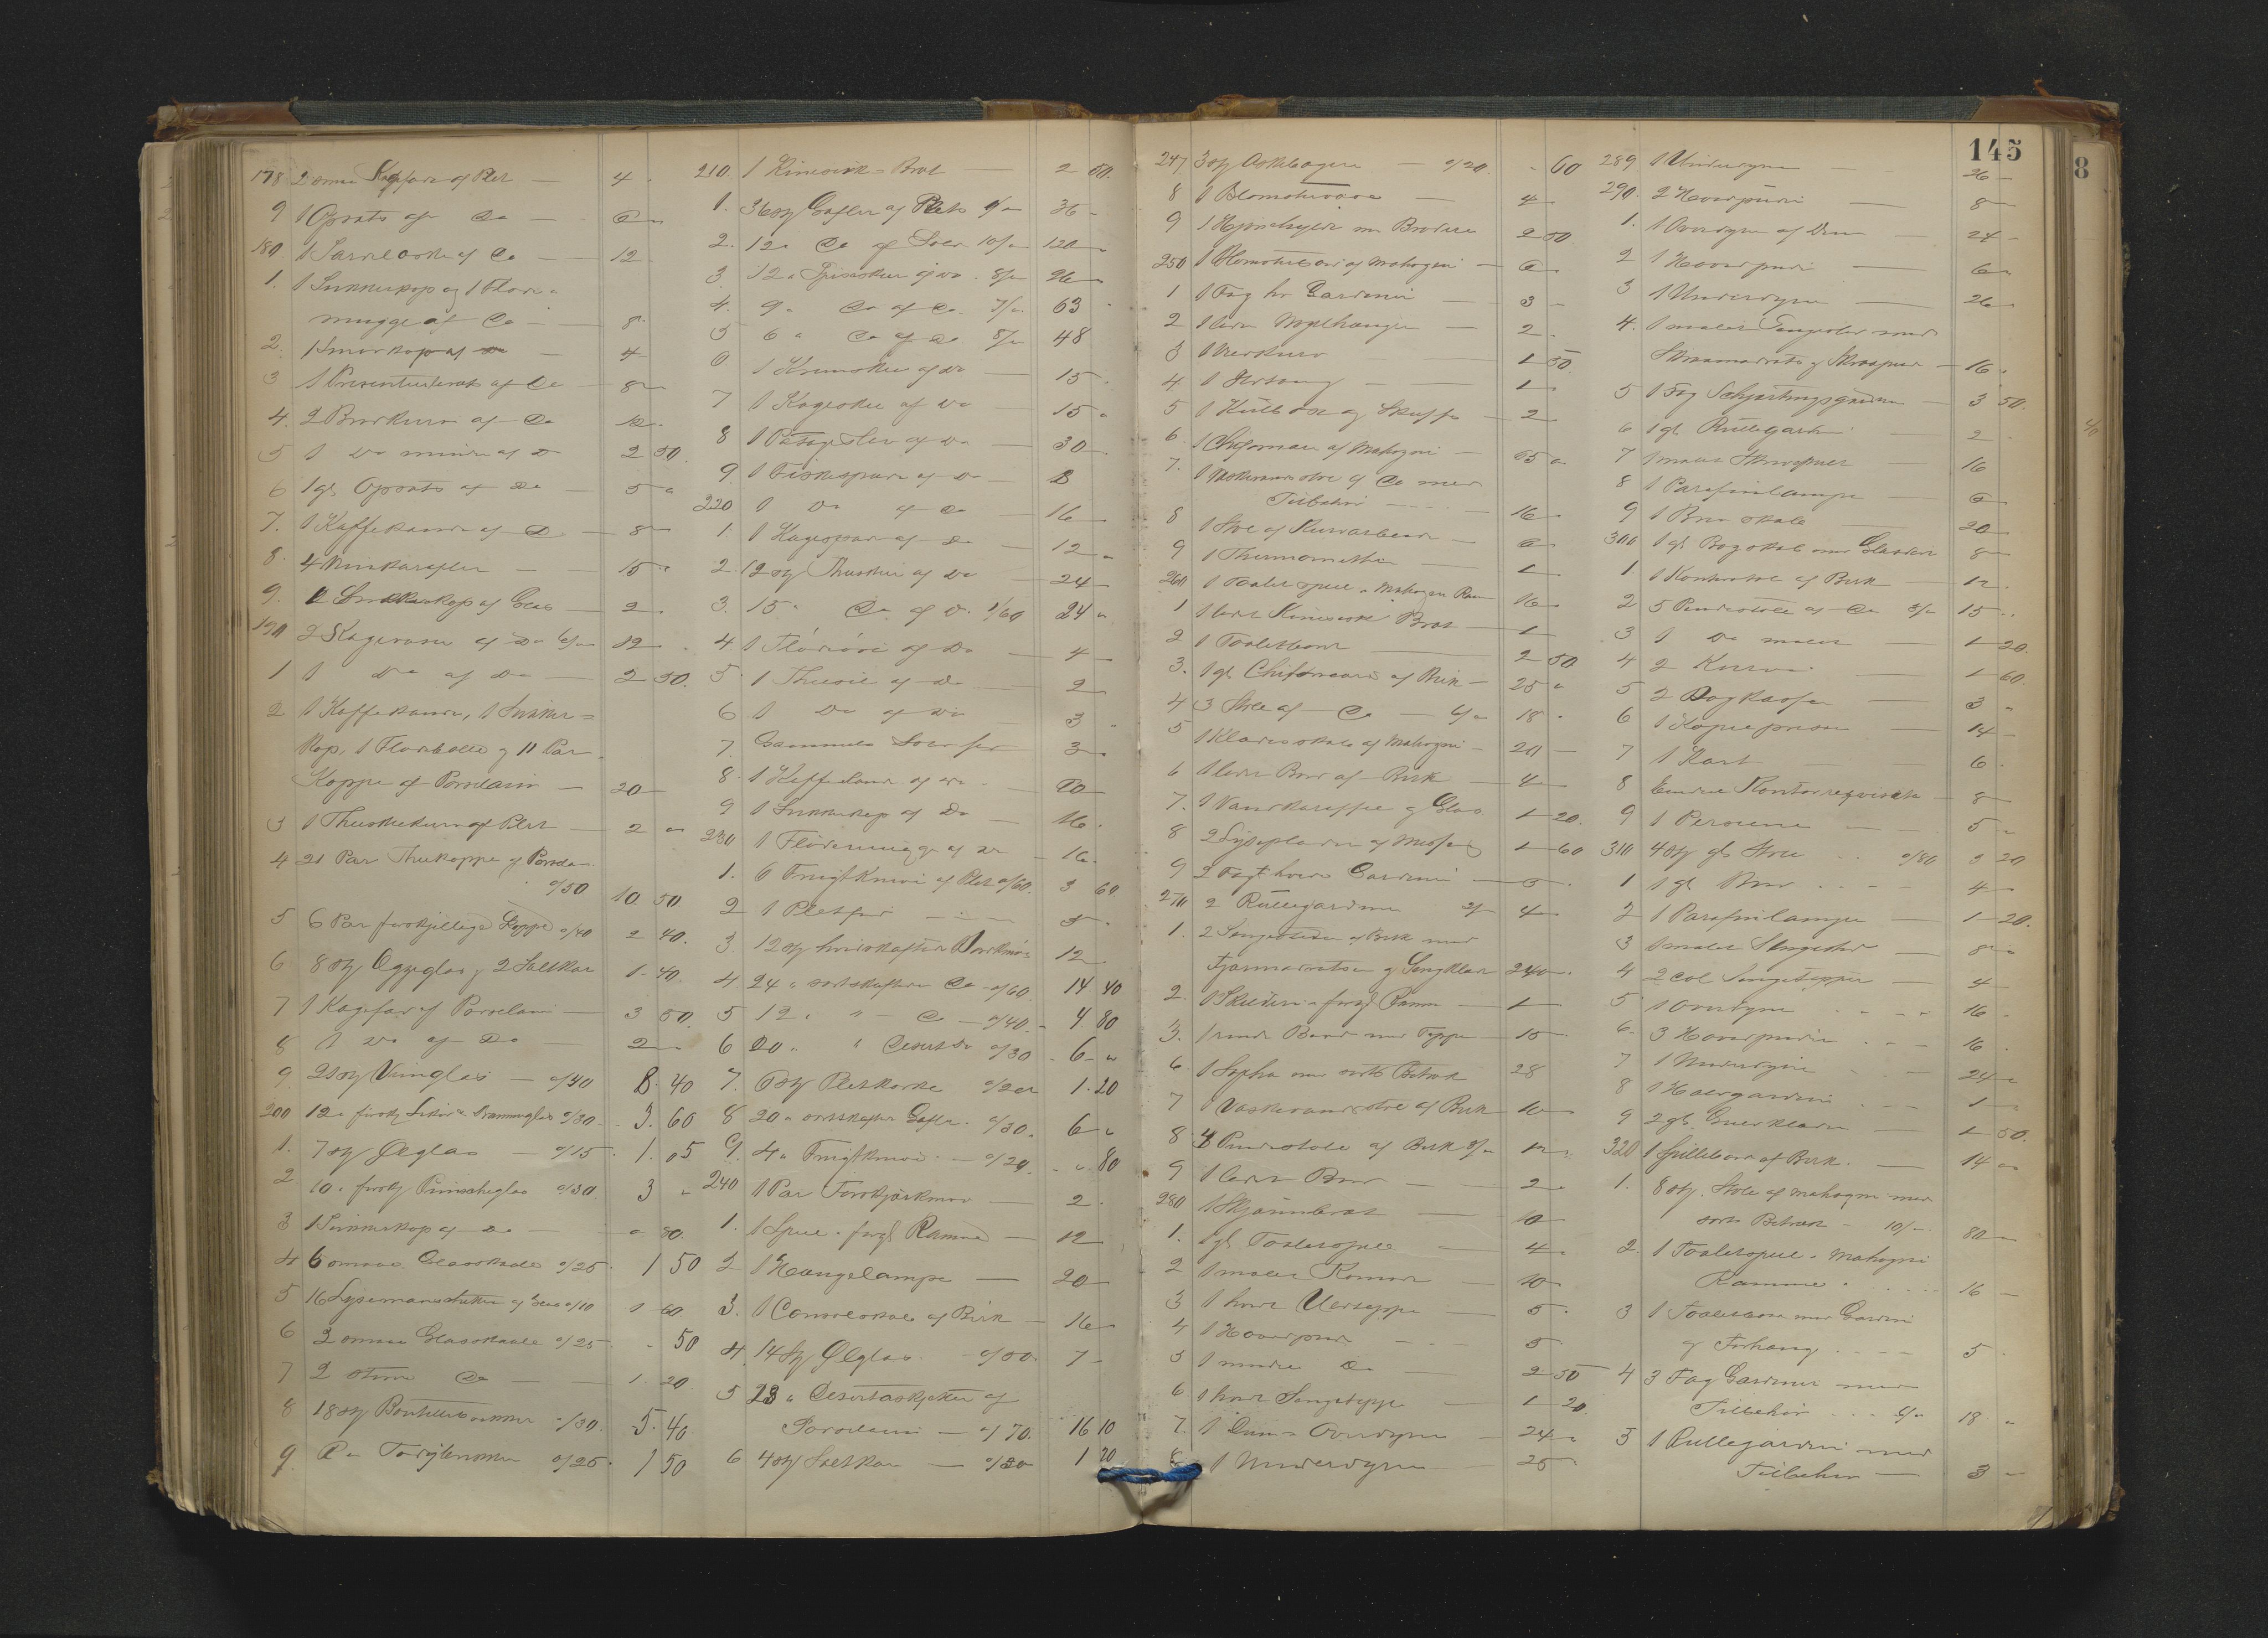 178 2 smaa Kagefade af Plet — 4 "
9 1 Opsats af Do — 6 "
180 1 Sardeldaase af Do — 12
1. 1 Sukkerkop og 1 Fløde=
mugge af Do — 8 "
2. 1 Smørkop af Do — 4
3 1 Presenterbret af Do — 8 "
4. 2 Brødkurve af Do 12 "
5 1 Do mindre af Do 2 50.
6 1 gl. Opsats af Do — 5 "
7. 1 Kaffekande af Do — 8 "
8. 4 Vinkarafler — 15 "
9. 2 Sukkerkop af Glas — 2 "
190 2 Kagevaser af Do 6/" 12 "
1 1 Do af Do — 2 50.
2 1 Kaffekande, 1 Sukker=
kop, 1 Flødebolle og 11 Par
Koppe af Porcelain — 20 "
3 1 Theskekurv af Plet — 2 "
4 21 Par Thekoppe af Porcelain
"/50 10 50
5 6 Par forskjellige Koppe "/40 2 40.
6 8 stk Eggeglas og 2 Saltkar 1. 40.
7 1 Kagefad af Porcelain — 3 50.
8 1 Do af Do — 2 "
9. 21 stk Vinglas — "/40 8. 40
200 12 " forskj. Likør & Dramglas "/30 3. 60
1. 7 stk Ølglas — "/15 1. 05
2 10 " forskj Punscheglas "/30. 3 "
3 1 Sukkerkop af Do — " 80.
4 6 smaa Glasskaale "/25. 1 50
5 16 Lysemanschetter af Glas "/10 1 60
6 2 smaa Glasskaale "/25 - 50
7 2 større Do — 1. 20
8 18 stk Bouteillebrikker "/30. 5. 40.
9. 6 " "/25. 1 50
210. 1 Kinesisk = Bret — 2 50.
1. 36 stk Gafler af Plet 1/" 36 -
2. 12 " Do af Sølv 10/" 120 "
3. 12 " Spiseskeer af Do. 8/" 96 "
4. 9 " Do af Do. 7/" 63 "
5 6 " Do af Do 8/" 48
6 1 Do — 15 "
7 1 Kageske af Do — 15 "
8 1 Potageske af Do — 30
9. 1 Fiskespade af Do — 8
220 1 Do af Do — 16
1. 1 Kagespade af Do — 12 "
2. 12 stk Theskeer af Do — 24
3. 15 " Do af Do. 1/60 24 "
4. 1 Flødeske af Do — 4
5. 1 Thesie af Do — 2
6 1 Do af Do — 3 "
7. Gammelt Sølv for 3 "
8. 1 Kaffekande af Do — 80
9 1 Sukkerkop af Do — 16.
230 1 Flødemugge af Do — 16.
1. 6 Frugtknive af Plet "/60. 3 60.
2 1 Pletfad — 5 "
3. 12 stk hvidskaftede Bordknive 12
4 24 " sortskaftede Do "/60. 14 40
5 12 " " Do "/40. 4 80
6 20 " " Desert Do "/30 6 "
7. 6 stk Pletkorke "/20 1. 20
8 20 " sortskaftede Gafler "/30. 6 "
9. 4 " Frugtknive "/20. " 80
240 1 Par Forskjærkniv — 2.
1. 1 Speil i forgl. Ramme — 12
2 1 Hængelampe — 20 "
3. 1 Consolskab af Birk — 16
4. 14 stk Ølglas "/50. 7 -
5 23 " Deserttaskjener af
Porcelain — "/70. 16 10
6 4 stk Saltkar — "/30 1 20
247 3 stk Askebægere — "/20. - 60
8 1 Blomstervase — 4
9 1 Hjørnehylde m. Broderi 2 50
250 1 Blomsterbord af Mahogni — 6 "
1 1 Fag hv. Gardiner — 3 "
2 1 liden Nøglehænger — 2.
3 1 Vedkurv — 1 50.
4. 1 — 1 "
5 1 Kulboxe og Skuffe — 2
6. 1 Chifoniere af Mahogni — 65 "
7. 1 Vaskevandsstol af Do med
Tilbehør — 16
8 1 Stol af Kurvarbeide — 6
9 1 Thermometer — 1
260 1 Toiletspeil i Mahogni Ramme 16
1 1 lidet Kinesisk Bret — 1
2 1 Toiletbord — 2 50
3. 1 gl. Chifoniere af Birk — 25 "
4 3 Stole af Do — 6/" 18 "
5 1 Klædesskab af Mahogni — 20 —
6 1 lidet Bord af Birk — 4
7. 1 Vandkaraffel af Glas 1 20.
8 2 Lysestager af Messing 1 60
9 2 Fag hvide Gardiner — 5.
270 2 Rullegardiner 2/" 4
1. 2 Sengesteder af Birk med
Fjærmadratser og Sengklæder 240 "
2. 1 Skilderi i forgl. Ramme — 1
3. 1 rundt Bord med Teppe — 15 "
6 1 Sopha med sort Betræk 28
7 1 Vaskevandsstol af Birk 10
8. 4 Pindestole af Birk 3/" 12
9 1 lidet Bord — 2
280 1 Skjærmbræt — 10
1. 1 gl. Toiletspeil — 4 "
2 1 malet Komode — 10
3 1 hvidt Vattæppe — 5 "
4 1 Hovedpude — 5 "
5 1 mindre Do — 2 50
6. 1 hvidt Sengetæppe — 1 20
7. 1 Duns Overdyne — 24 "
8. 1 Underdyne — 25 "
145
289 1 Underdyne — 26 —
290. 2 Hovedpuder — 8
1. 1 Overdyne af Dun — 24 —
2 1 Hovedpude — 6
3 1 Underdyne — 26
4. 1 malet Sengested med
Straamadrats og Skraapude — 16 "
5 1 Fag Schjærtingsgardiner — 3 50.
6 1 gl. Rullegardin — 2
7 1 malet — 16
8 1 Parafinlampe — 6
9 1 Brun skab — 20
300 1 gl. Bogskab med Glasdøre 8
1. 1 Kontorstol af Birk — 12.
2 5 Pindestole af Do 3/" 15 "
3 1 Do malet — 1 20.
4 2 Kurve — 1 60.
5 2 — 3 "
6 1 Kopiepresse — 14 —
7 1 Kart — 6.
8 Endel Kontorreqvisita — 8
9 1 — 5 "
310 4 stk gl. Stole "/80 3 20
1 1 gl. Bord — 4
2 1 Parafinlampe — 1 20.
3 1 malet Sengested — 8 "
4 2 col. Sengetæpper — 4
5 1 Overdyne — 16 -
6. 3 Hovedpuder — 16 .
7 1 Underdyne — 24
8 1 — 1
9 2 gl. — 1 50.
320 1 Spillebord af Birk. — 14 "
1. 8 stk. Stole af Mahogni med
sort Betræk 10/" 80
2. 1 Toiletspeil i Mahogni
Ramme. 16 —
3 1 Toiletbord med Gardin
og Forhæng — 5.
4 3 Fag Gardiner med
Tilbehør 6/" 18 "
5 1 Rullegardin med
Tilbehør — 3 "
8